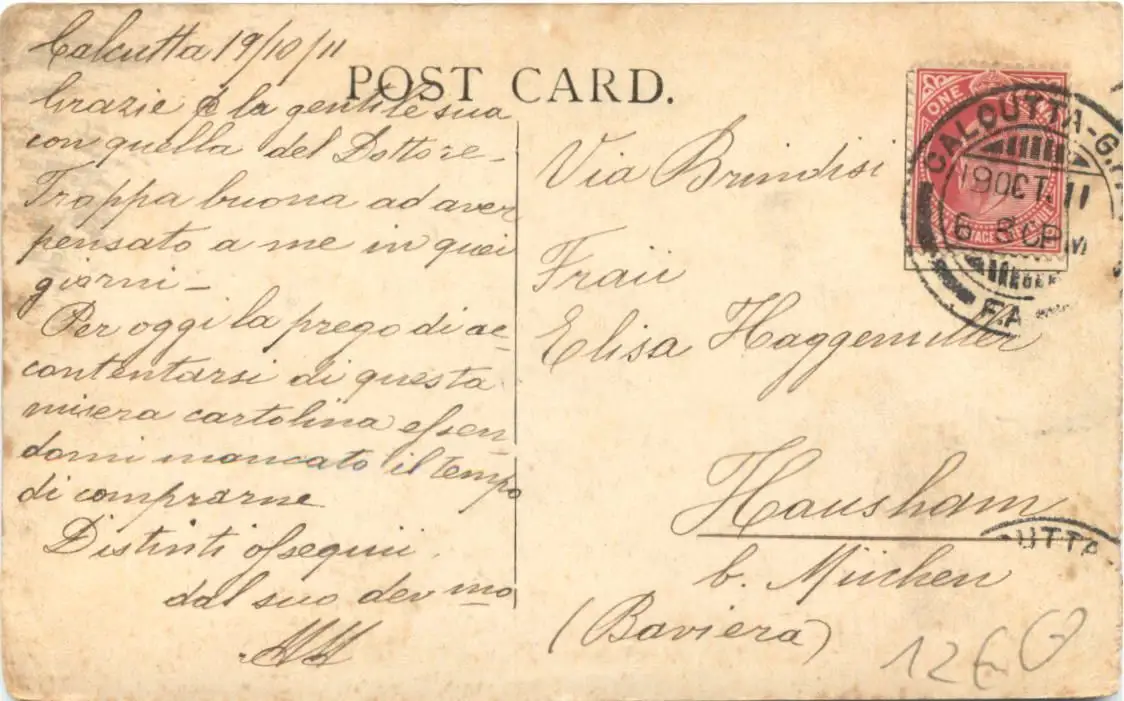 Calcutta 19/10/11
POST CARD.
Grazie è la gentile sua
con quella del Dottore-
Troppa buona ad aver
pensato a me in quei
giorni-
Per oggi la prego di ac
contentarsi di questa
misera cartolina essen
domi mancato il tempo
di comprarne
Distinti ossequii.
dal suo dev mo
Via Brindisi
Frau
Elisa Haggemiller
Hausham
b. München
(Baviera)
ONE
CALCUTTA-G.
19 OCT. 11
6 30 PM
UTTA
12€